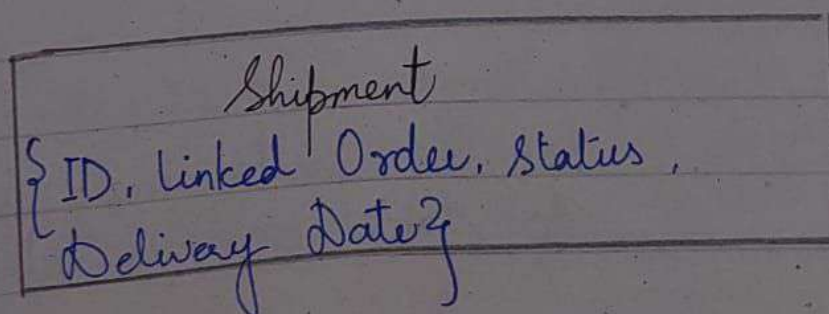 Shipment
{ID, linked Order, Status,
Delivery Date}